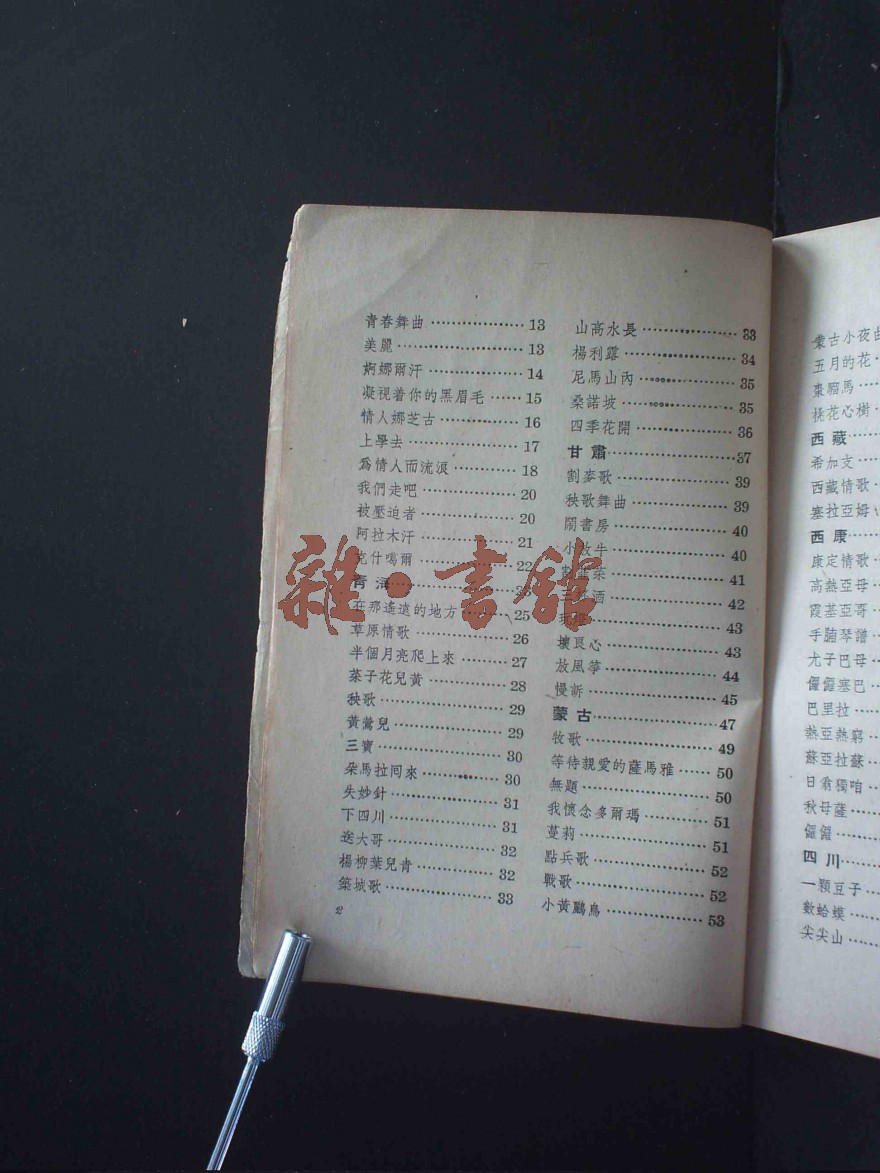 青春舞曲 13
美麗 13
婀娜爾汗 14
凝視着你的黑眉毛 15
情人娜芝古 16
上學去 17
爲情人而流淚 18
我們走吧 20
被壓迫者 20
阿拉木汗 21
克什噶爾 22
青海 23
在那遙遠的地方 25
草原情歌 26
半個月亮爬上來 27
菜子花兒黃 28
秧歌 29
黃鶯兒 29
三寶 30
朵馬拉同來 30
失妙針 31
下四川 31
送大哥 32
楊柳葉兒青 32
築城歌 33
2
山高水長 33
楊利露 34
尼馬山丙 35
桑諾坡 35
四季花開 36
甘肅 37
割麥歌 39
秧歌舞曲 39
鬧書房 40
小放牛 40
41
42
43
壞良心 43
放風箏 44
慢訴 45
蒙古 47
牧歌 49
等待親愛的薩馬雅 50
無題 50
我懷念多爾瑪 51
蔓莉 51
點兵歌 52
戰歌 52
小黃鸝鳥 53
蒙古小夜曲
五月的花
棗騮馬
桃花心樹
西藏
希加支
西藏情歌
塞拉亞姆
西康
康定情歌
高熱亞母
霞基亞哥
手腩琴譜
尤子巴母
儸儸塞巴
巴里拉
熱亞熱窮
蘇亞拉蘇
日翕獨咱
秋母薩
儸儸
四川
一顆豆子
數蛤蟆
尖尖山
雜·書館